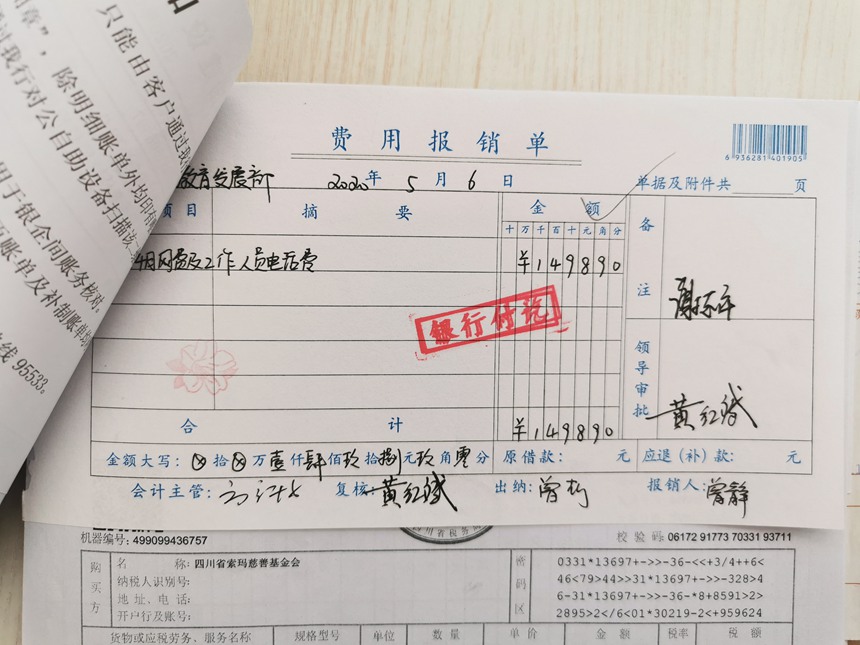 只能由客户通过我
章”，除明细账单外均印有
过我行对公自助设备扫描该二
用于银企间账务核对，
账单及补制账单均
线 95533。
费用报销单
6 936281 401905
教育发展部 2020年 5月 6日 单据及附件共 页
项目 摘要 金额 备注
十万千百十元角分
网费及工作人员电话费 ¥149890
银行付讫
领导审批 黄红斌
合计 ¥149890
金额大写：ⓧ拾ⓧ万壹仟肆佰玖拾捌元玖角零分 原借款： 元 应退（补）款： 元
会计主管： 复核：黄红斌 出纳：曾 报销人：曾静
机器编号：499099436757 校验码：06172 91773 70331 93711
购买方 名称：四川省索玛慈善基金会 密码区 0331*13697+->>-36-<<+3/4++6<
纳税人识别号： 46<79>44>>31*13697+->>-328>4
地址、电话： 6-31*13697+->>-36-*8+8591>2>
开户行及账号： 2895>2</6<01*30219-2<+959624
货物或应税劳务、服务名称 规格型号 单位 数量 单价 金额 税率 税额